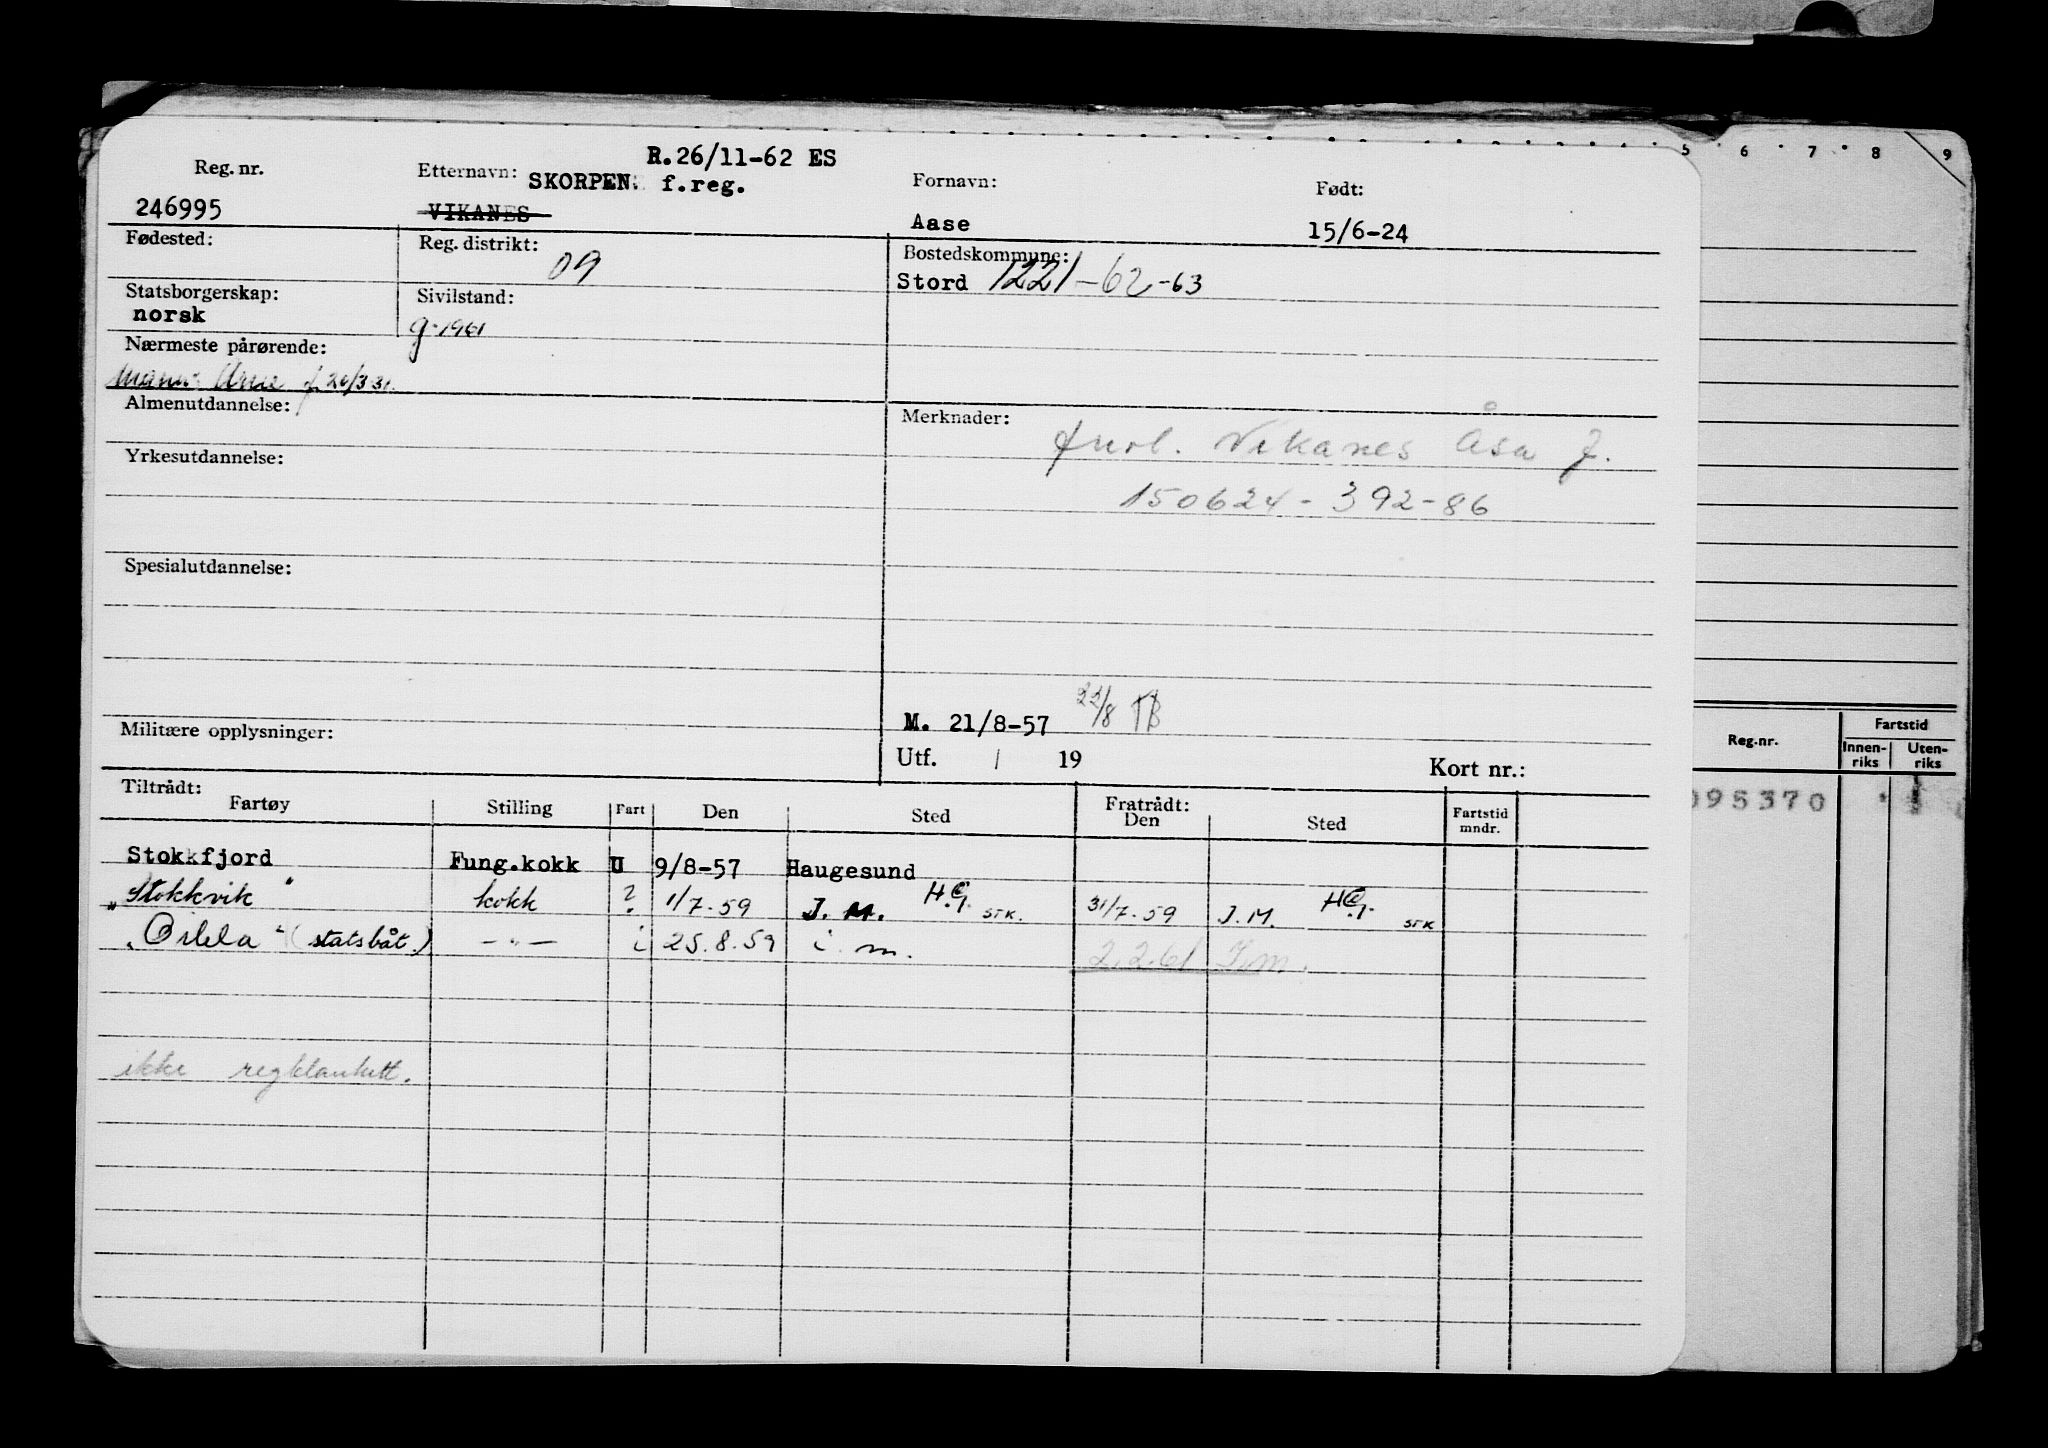 R.26/11-62 ES
Reg. nr. Etternavn: SKORPEN. f.reg. Fornavn: Født:
246995 VIKANES Aase 15/6-24
Fødested: Reg. distrikt: 09 Bostedskommune:
Stord 1221-62-63
Statsborgerskap: norsk Sivilstand: g. 1961
Nærmeste pårørende:
Mann: Arne f.
Almenutdannelse: Merknader:
Vikanes Åsa J.
Yrkesutdannelse:
150624-392-86
Spesialutdannelse:
M. 21/8-57 22/8 TB
Militære opplysninger: Utf. / 19 Kort nr.:
Tiltrådt: Fratrådt:
Fartøy Stilling Fart Den Sted Den Sted Fartstid mndr.
Stokkfjord Fung.kokk U 9/8-57 Haugesund
"Stokkvik" kokk ? 1/7.59 J. M. H.G. STK. 31/7.59 J.M. HG. STK
(statsbåt.) -"- i 25.8.59 i. m. 2.2.61 I.m.
ikke regblankett.
5 6 7 8 9
Reg.nr. Fartstid
Innen-riks Uten-riks
095370